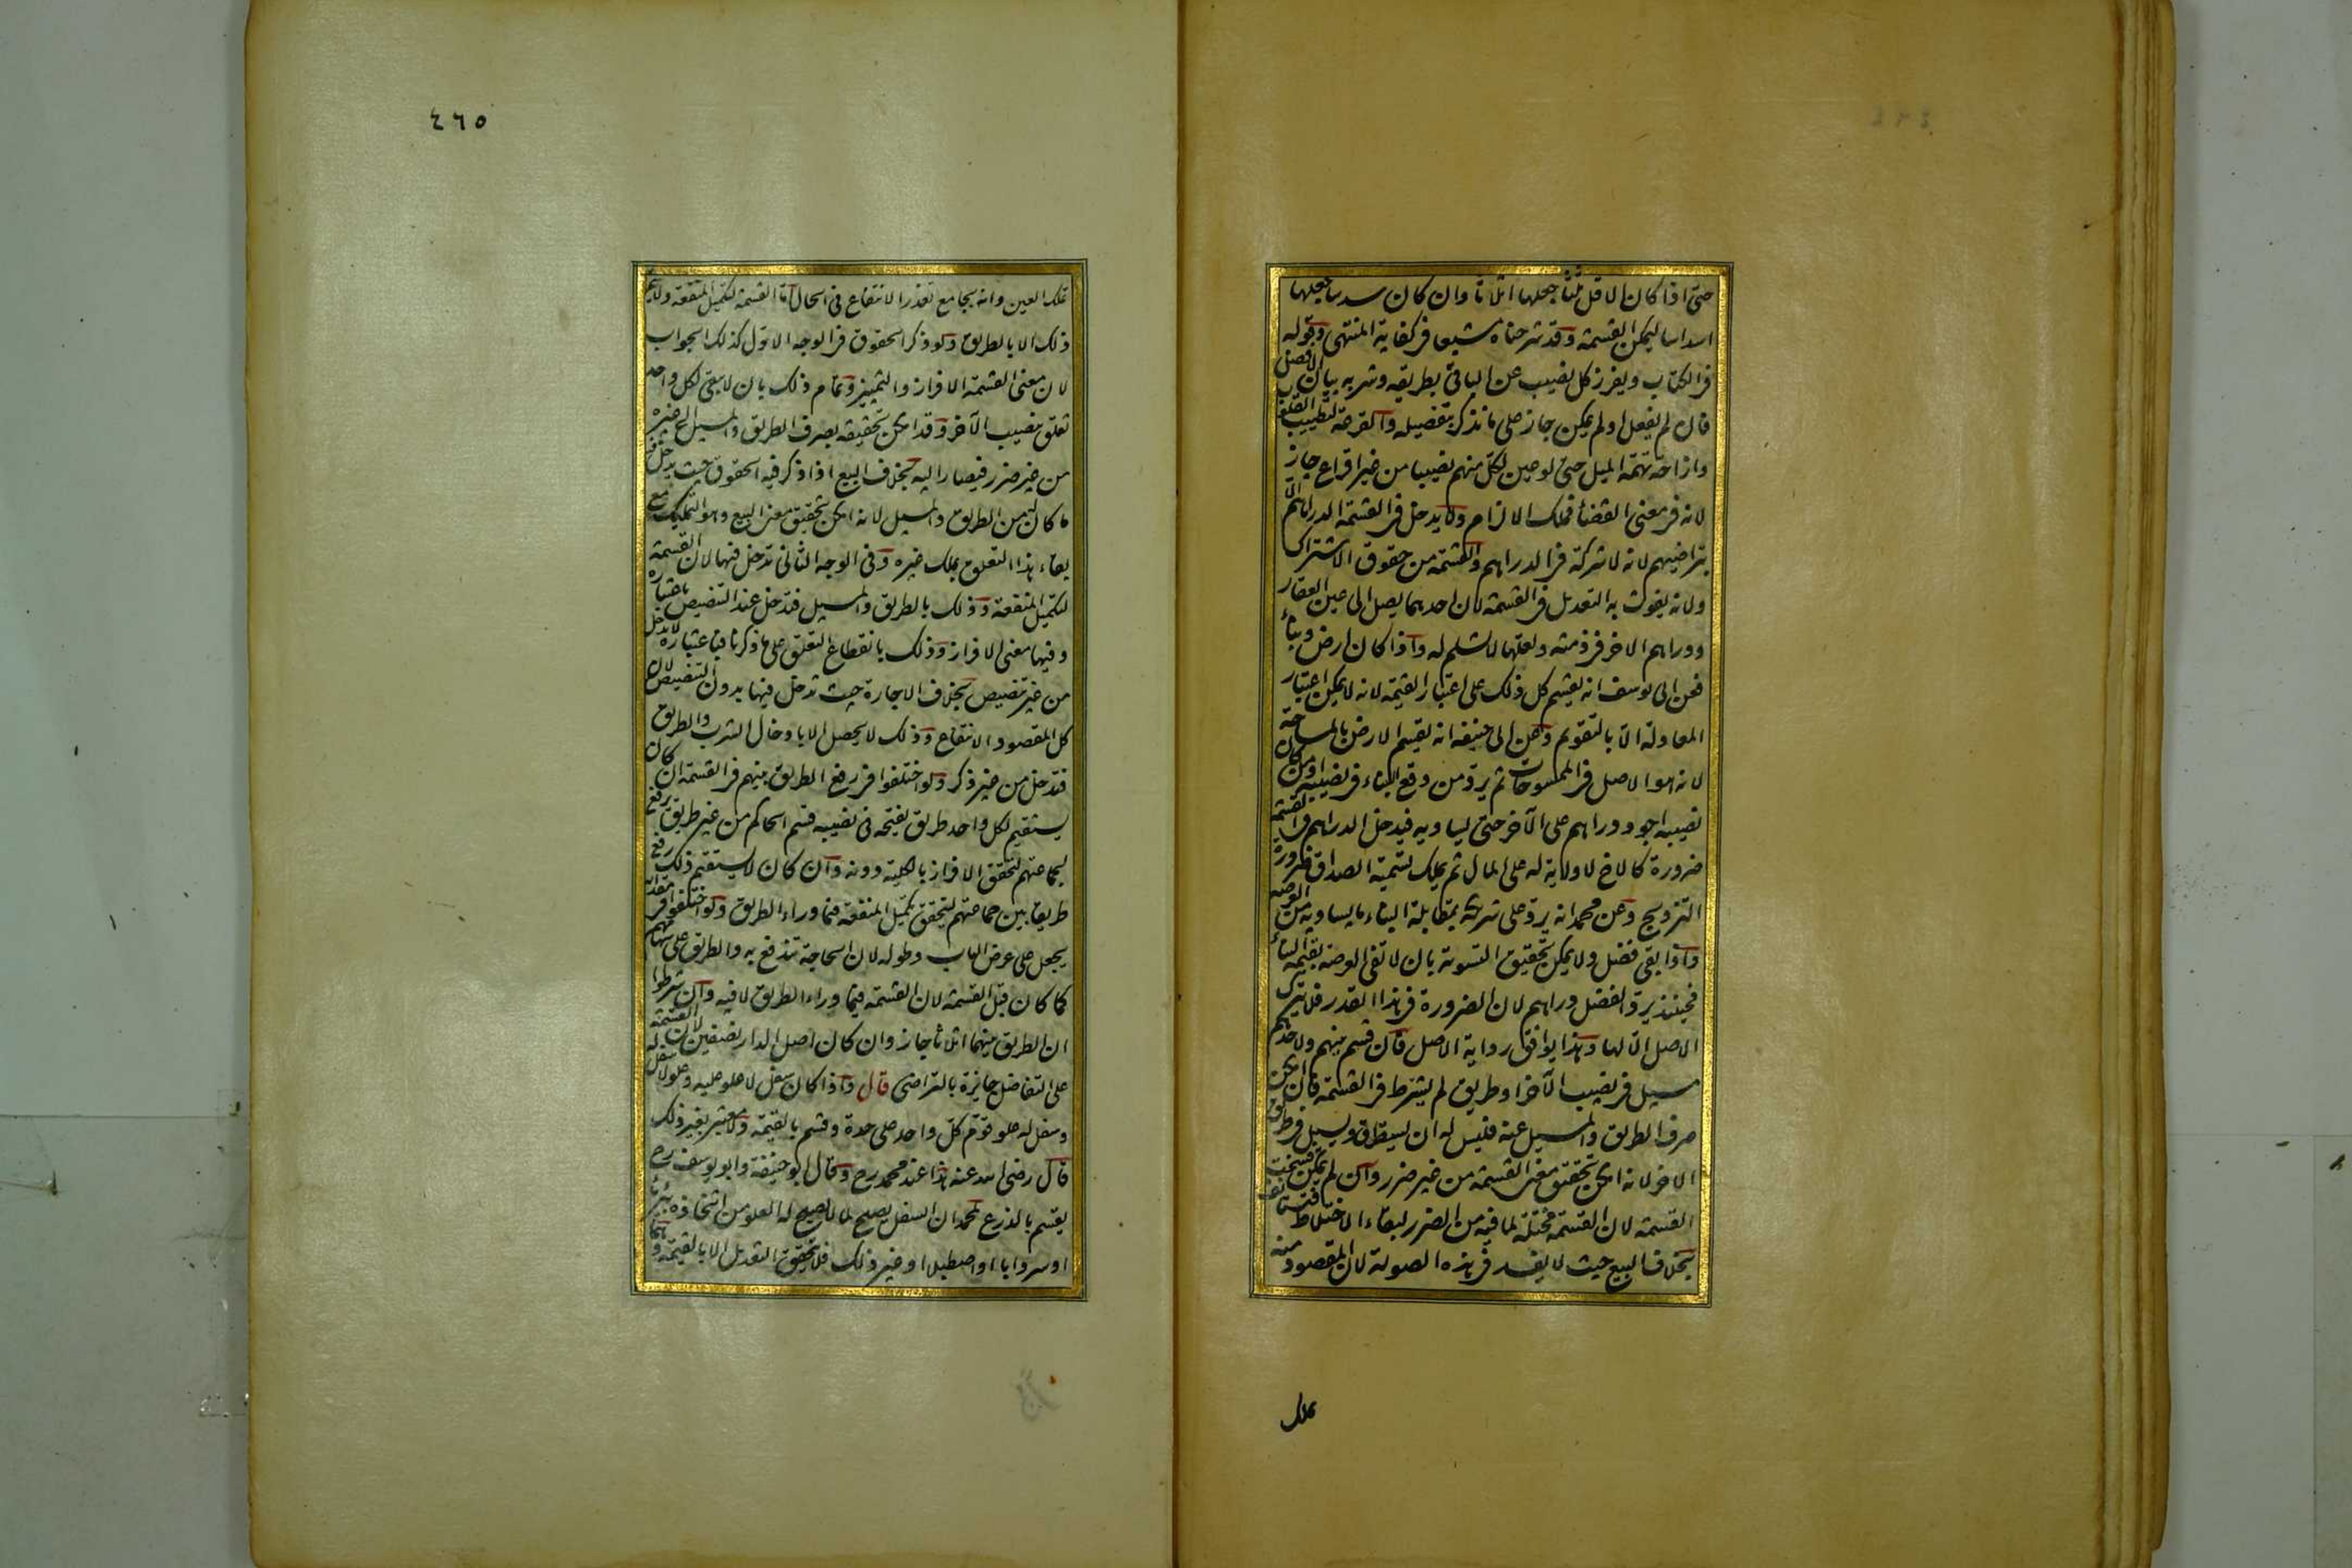 حتى اذا كان الاقل ثلثا جعلها اثلاثا وان كان سدسا جعلها
اسداسا ليمكن القسمة وقد شرحناه مشبعا فى كفاية المنتهى وقوله
فى الكتاب ويفرز كل نصيب عن الباقى بطريقه وشربه بيان الافضل
فان لم يفعل او لم يمكن جاز على ما نذكر بتفصيله والقرعة لتطييب القلوب
وازاحة تهمة الميل حتى لو عين لكل منهم نصيبا من غير اقراع جاز
لانه فى معنى القضاء فملك الالزام ولا يدخل فى القسمة الدراهم الا
بتراضيهم لانه لا شركة فى الدراهم والقسمة من حقوق الاشتراك
ولانه يفوت به التعديل فى القسمة لان احدهما يصل الى عين العقار
ودراهم الاخر فى ذمته ولعلها لا تسلم له واذا كان ارض وبناء
فعن ابى يوسف انه يقسم كل ذلك على اعتبار القيمة لانه لا يمكن اعتبار
المعادلة الا بالتقويم وعن ابى حنيفة انه يقسم الارض بالمساحة
لانه هو الاصل فى الممسوحات ثم يرد من وقع البناء فى نصيبه او من كان
نصيبه اجود دراهم على الآخر حتى يساويه فيدخل الدراهم فى القسمة
ضرورة كالاخ لا ولاية له على المال ثم يملك تسمية الصداق ضرورة
التزويج وعن محمد انه يرد على شريكه بمقابلة البناء ما يساويه من العرصة
واذا بقى فضل ولا يمكن تحقيق التسوية بان لا تفى العرصة بقيمة البناء
فحينئذ يرد الفضل دراهم لان الضرورة فى هذا القدر فلا يترك
الاصل الا لها وهذا يوافق رواية الاصل فان قسم بينهم ولاحدهم
مسيل فى نصيب الآخر او طريق لم يشترط فى القسمة فان امكن
صرف الطريق والمسيل عنه فليس له ان يستطرق ويسيل فى طريق
الاخر لانه امكن تحقيق معنى القسمة من غير ضرر وان لم يمكن فسخت
القسمة لان القسمة مختلة لما فيه من الضرر لبقاء الاختلاط فتستأنف
بخلاف البيع حيث لا يفسد فى هذه الصورة لان المقصود منه
تملك
٤٦٥
تملك العين وانه يجامع تعذر الانتفاع فى الحال اما القسمة لتكميل المنفعة ولا يتم
ذلك الا بالطريق ولو ذكر الحقوق فى الوجه الاول كذلك الجواب
لان معنى القسمة الافراز والتمييز وتمام ذلك بان لا يبقى لكل واحد
تعلق بنصيب الآخر وقد امكن تحقيقه بصرف الطريق والمسيل الى غيره
من غير ضرر فيصار اليه بخلاف البيع اذا ذكر فيه الحقوق حيث يدخل فيه
ما كان من الطريق والمسيل لانه امكن تحقيق معنى البيع وهو التمليك مع
بقاء هذا التعلق بملك غيره وفى الوجه الثانى تدخل فيها لان القسمة
لتكميل المنفعة وذلك بالطريق والمسيل فتدخل عند التنصيص باعتباره
وفيها معنى الافراز وذلك بانقطاع التعلق على ما ذكرنا فباعتباره لا يدخل
من غير تنصيص بخلاف الاجارة حيث تدخل فيها بدون التنصيص لان
كل المقصود الانتفاع وذلك لا يحصل الا بادخال الشرب والطريق
فتدخل من غير ذكر ولو اختلفوا فى رفع الطريق بينهم فى القسمة ان كان
يستقيم لكل واحد طريق يفتحه فى نصيبه قسم الحاكم من غير طريق رفع
لجماعتهم لتحقق الافراز بالكلية دونه وان كان لا يستقيم ذلك رفع
طريقا بين جماعتهم ليتحقق تكميل المنفعة فيما وراء الطريق ولو اختلفوا فى مقداره
يجعل على عرض الباب وطوله لان الحاجة تندفع به والطريق على سهامهم
كما كان قبل القسمة لان القسمة فيما وراء الطريق لا فيه وان شرطوا
ان الطريق بينهما اثلاثا جاز وان كان اصل الدار نصفين لان القسمة
على التفاضل جائزة بالتراضى قال واذا كان سفل لا علو عليه وعلو لا سفل له
وسفل له علو قوم كل واحد على حدة وقسم بالقيمة ولا معتبر بغير ذلك
قال رضى الله عنه هذا عند محمد رح وقال ابو حنيفة وابو يوسف رح
يقسم بالذرع لمحمد ان السفل يصلح لما لا يصلح له العلو من اتخاذه بئر ماء
او سردابا او اصطبلا او غير ذلك فلا يتحقق التعديل الا بالقيمة وهما